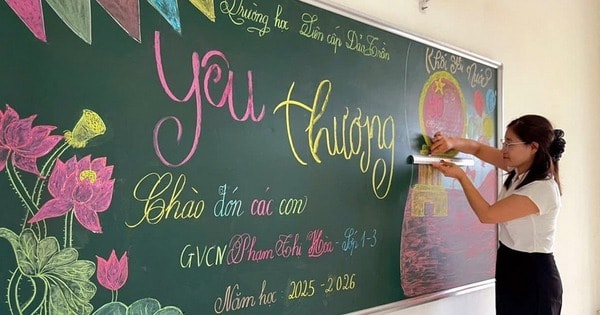 Trường học Liên cấp
Yêu
thương
Chào đón các con
GVCN Phạm Thị Hòa - Lớp 1-3
Năm học 2025 - 2026
Nước